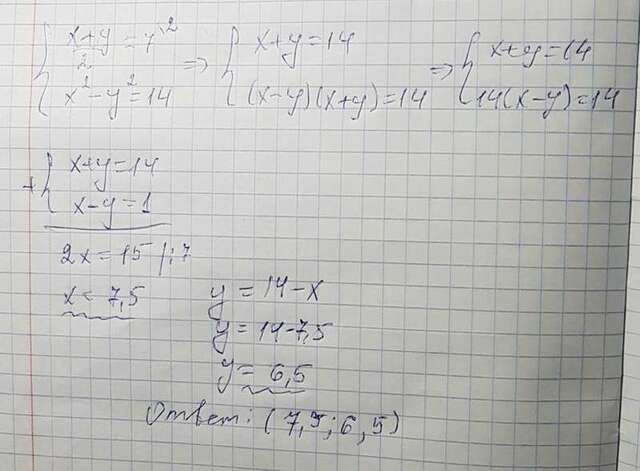 { (x+y)/2 = 7 |·2 ⇒ { x+y=14 ⇒ { x+y=14
x²-y²=14 (x-y)(x+y)=14 14(x-y)=14
+ { x+y=14
x-y=1
2x=15 |:7
x=7,5
y=14-x
y=14-7,5
y=6,5
Ответ: (7,5;6,5)